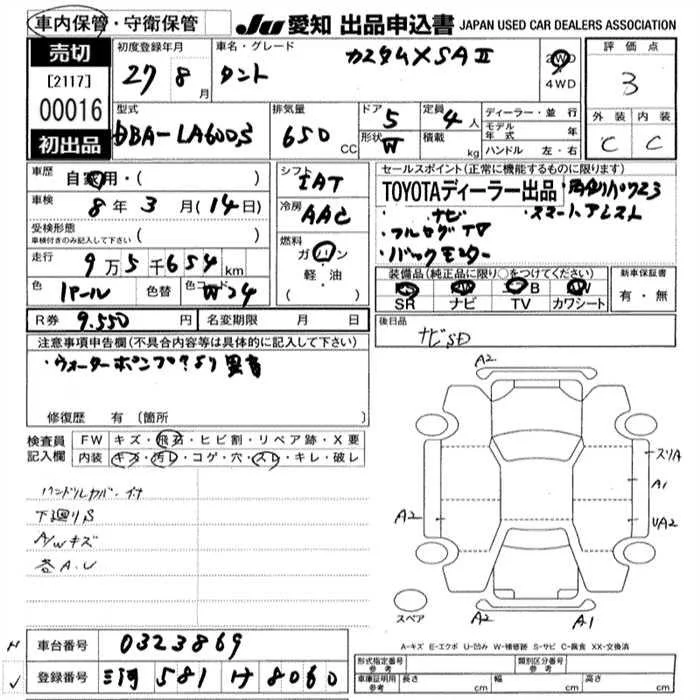 車内保管・守衛保管
JU 愛知 出品申込書 JAPAN USED CAR DEALERS ASSOCIATION
売切
[2117]
00016
初出品
初度登録年月 車名・グレード カスタムXSAⅡ 2WD
27 8月 タント 4WD
評価点
3
外装 内装
C C
型式 排気量 ドア 5 定員 4人 ディーラー・並行
DBA-LA600S 650 CC 形状 W 積載 kg モデル年式 年
ハンドル 左・右
車歴 自家用・( )
車検 8年 3月(14日)
受検形態
車検付きのみ記入して下さい ( )
走行 9万5千654km
色 パール 色替 色コード W24
シフト IAT
冷房 AAC
燃料 ガソリン
軽・油
セールスポイント(正常に機能するものに限ります)
TOYOTAディーラー出品
・ナビ ・スマートアシスト
・フルセグTV
・バックモニター
装備品(純正品に限り○をつけてください)
SR ナビ TV カワシート
新車保証書
有・無
R券 9.550円 名変期限 月 日
後日品
ナビSD
注意事項申告欄(不具合内容等は具体的に記入して下さい)
・ウォーターポンプ?より異音
修復歴 有 [箇所
検査員記入欄
FW キズ・飛石・ヒビ割・リペア跡・X要
内装 キズ・汚レ・コゲ・穴・スレ・キレ・破レ
下廻りS
A/Wキズ
各A.U
A2
スリA
A1
A2
UA2
スペア
A2 A1
A-キズ E-エクボ U-凹み W-補修跡 S-サビ C-腐食 XX-交換済
車台番号 0323869
登録番号 三河 581 け 8060
形式指定番号 参考 類別区分番号 参考
車庫証明用 参考 長さ cm 幅 cm 高さ cm